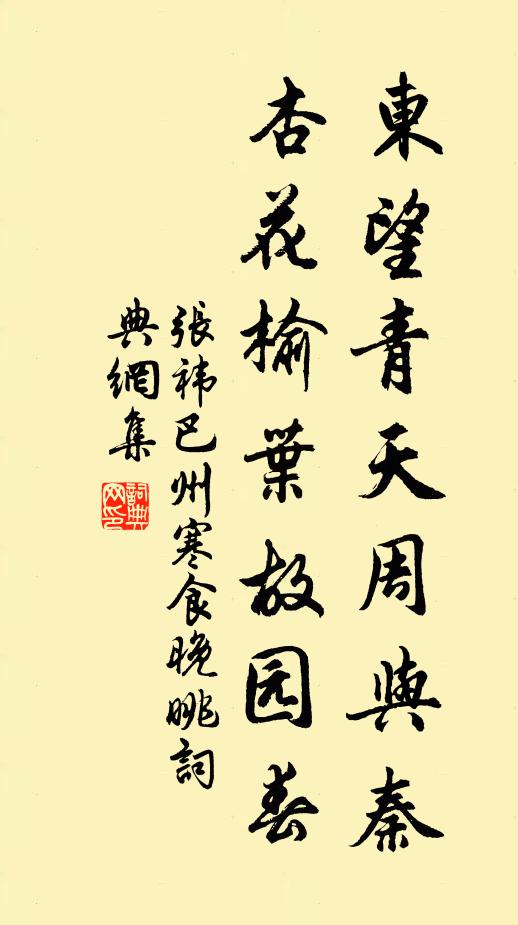 東望青天周與秦
杏花榆葉故园春
張祎巴州寒食晚眺詞
典網集
詞典
网印